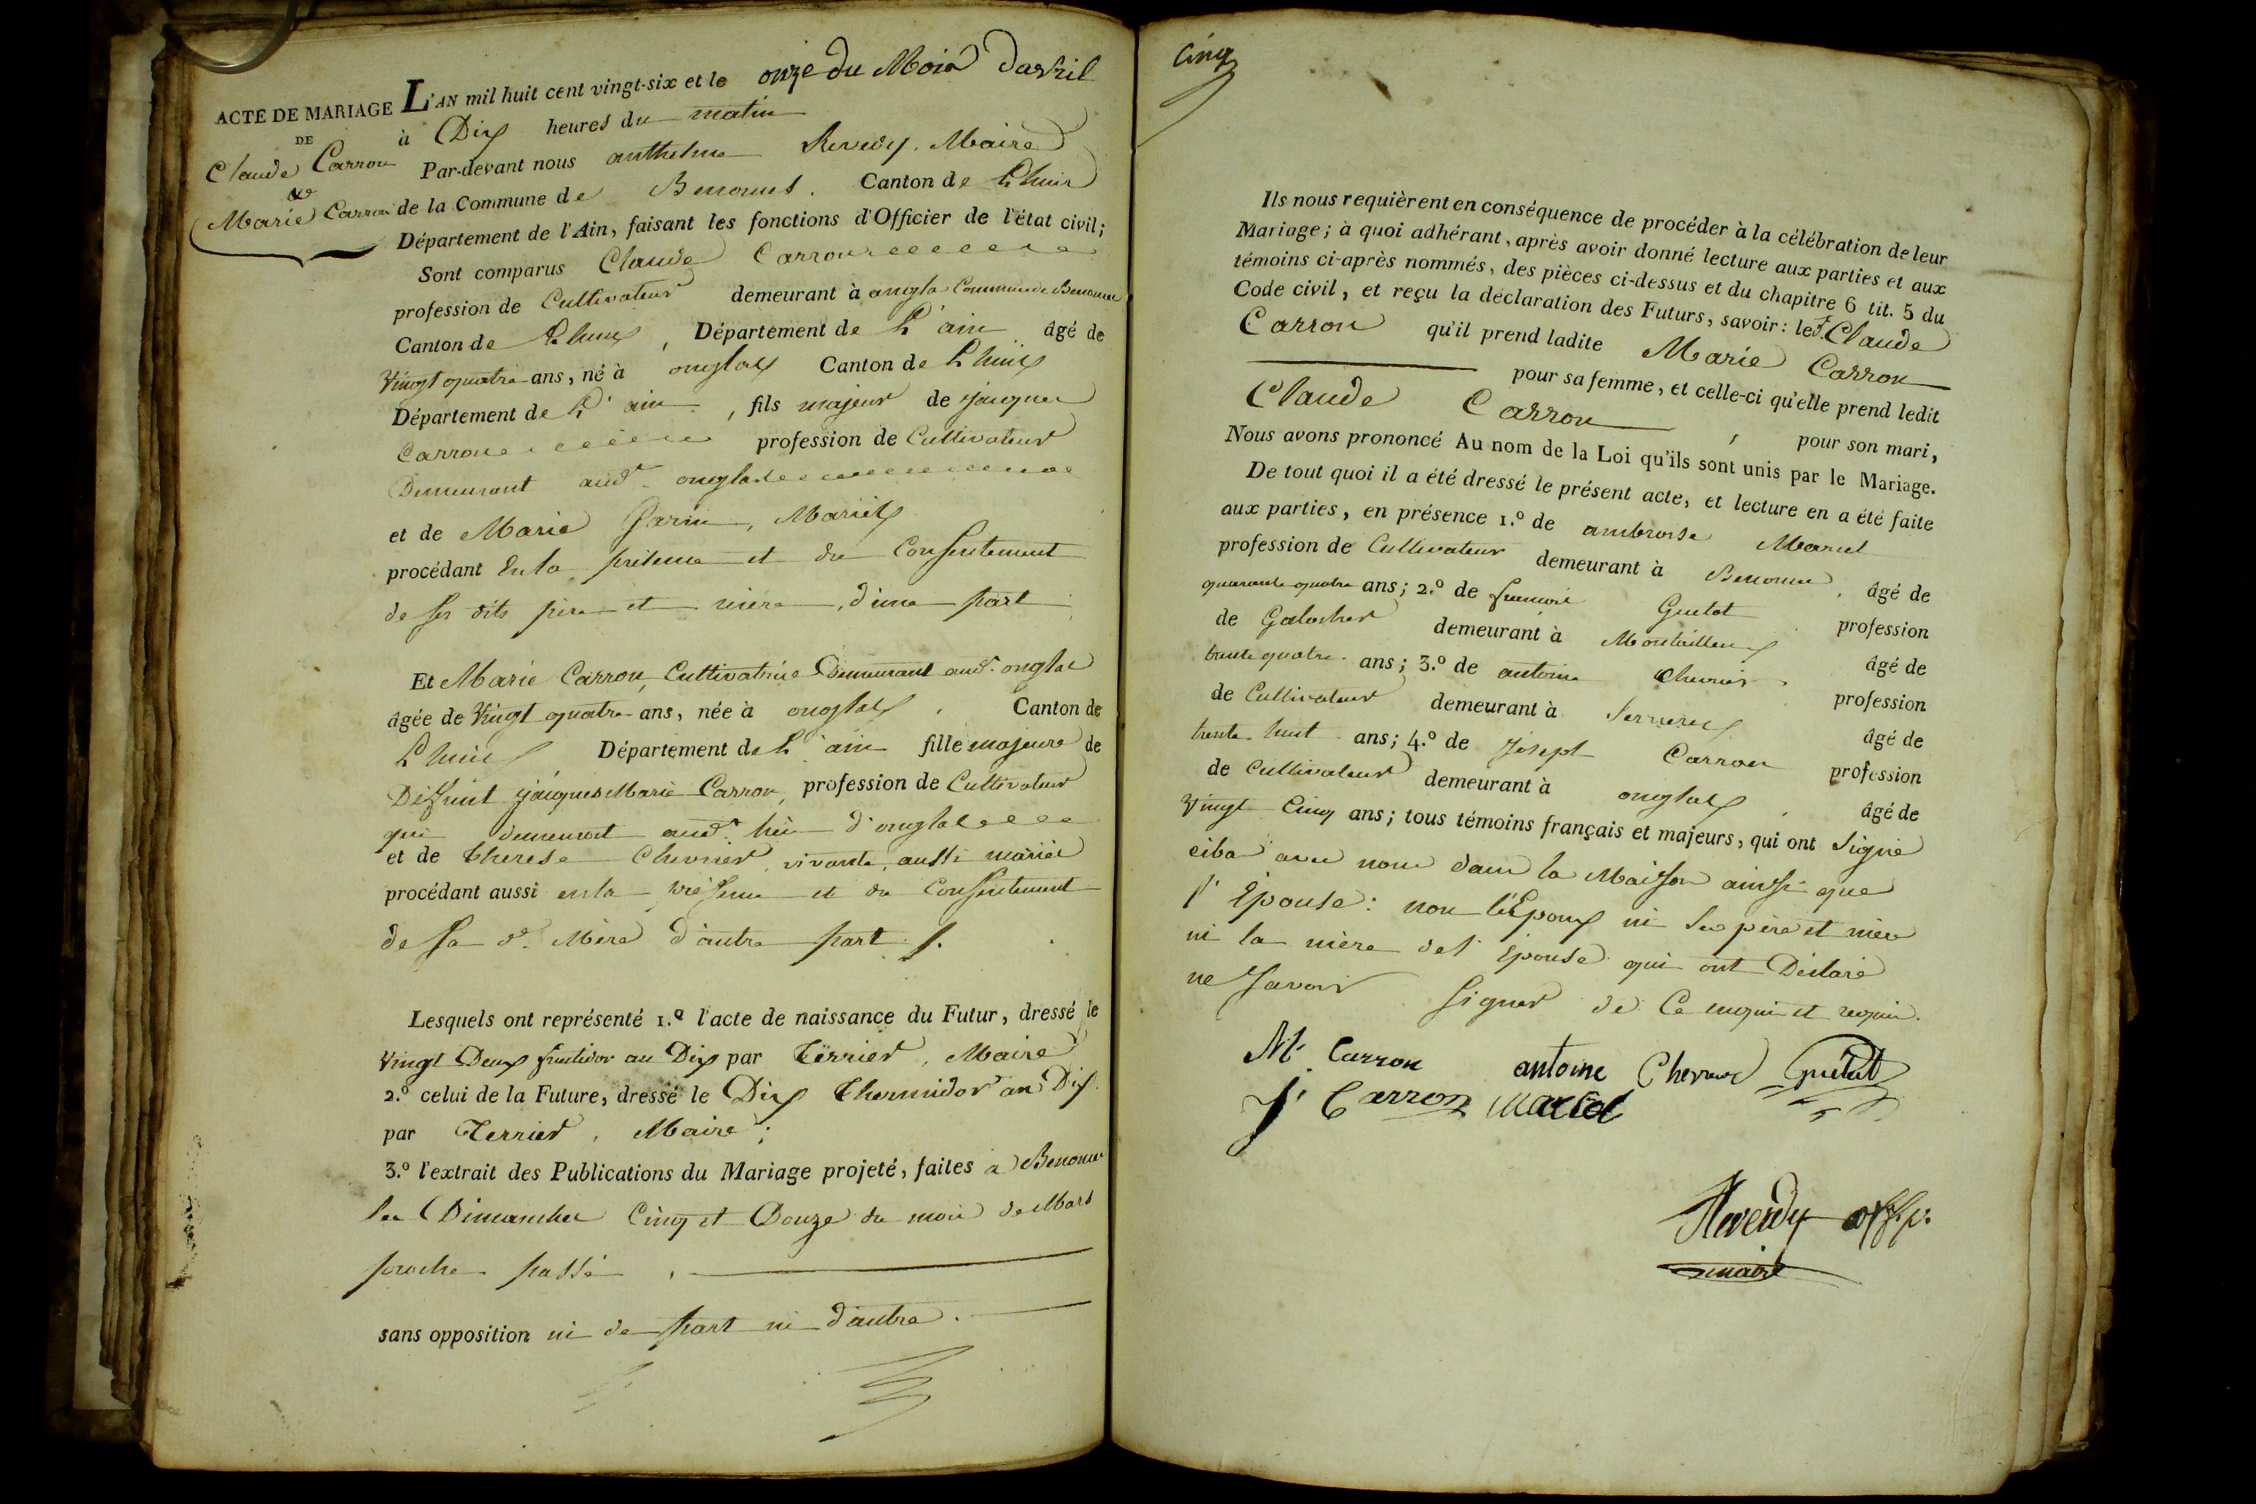 ACTE DE MARIAGE
DE
Claude Carron
&
Marie Carron
L'AN mil huit cent vingt-six et le onze du Mois davril
à Dix heures du matin
Par-devant nous anthelme Reverdy, Maire
de la Commune de Benonces. Canton de Lhuis
Département de l'Ain, faisant les fonctions d'Officier de l'état civil;
Sont comparus Claude Carron
profession de Cultivateur demeurant à onglas Commune de Benonces
Canton de Lhuis, Département de L'ain âgé de
Vingt quatre ans, né à onglas Canton de Lhuis
Département de L'ain, fils majeur de jacques
Carron profession de Cultivateur
Demeurant aud. onglas
et de Marie Parin, Mariés
procédant En la présence et du Consentement
de ses dits père et mère, d'une part
Et Marie Carron, Cultivatrice Demeurant aud. onglas
âgée de Vingt quatre ans, née à onglas, Canton de
Lhuis Département de L'ain fille majeure de
Défunt jacques Marie Carron, profession de Cultivateur
qui demeurait aud. lieu d'onglas
et de therese Chevrier vivante, aussi mariés
procédant aussi en la présence et du Consentement
de sa de. Mère d'autre part.
Lesquels ont représenté 1.º l'acte de naissance du Futur, dressé le
Vingt Deux fructidor an Dix par Terrier, Maire
2.º celui de la Future, dressé le Dix thermidor an Dix
par Terrier, Maire;
3.º l'extrait des Publications du Mariage projeté, faites a Benonces
les Dimanches Cinq et Douze du mois de Mars
proche passé.
sans opposition ni de part ni d'autre.
Cinq
Ils nous requièrent en conséquence de procéder à la célébration de leur
Mariage; à quoi adhérant, après avoir donné lecture aux parties et aux
témoins ci-après nommés, des pièces ci-dessus et du chapitre 6 tit. 5 du
Code civil, et reçu la déclaration des Futurs, savoir: led. Claude
Carron qu'il prend ladite Marie Carron
pour sa femme, et celle-ci qu'elle prend ledit
Claude Carron, pour son mari,
Nous avons prononcé Au nom de la Loi qu'ils sont unis par le Mariage.
De tout quoi il a été dressé le présent acte, et lecture en a été faite
aux parties, en présence 1.º de ambroise Marcel
profession de Cultivateur demeurant à Benonces, âgé de
quarante quatre ans; 2.º de françois Guetat profession
de Galocher demeurant à Montailleux âgé de
trente quatre ans; 3.º de antoine Chevrier profession
de Cultivateur demeurant à Serrieres âgé de
trente huit ans; 4.º de Joseph Carron profession
de Cultivateur demeurant à onglas, âgé de
Vingt Cinq ans; tous témoins français et majeurs, qui ont signé
ci bas avec nous dans la Maison ainsi que
l'Epouse: non l'Epoux ni ses père et mère
ni la mère de l'épouse qui ont Déclaré
ne savoir signer de Ce enquis et requis.
M. Carron antoine Chevrier Guétat
J. Carron Marcel
Reverdy off. p.
maire